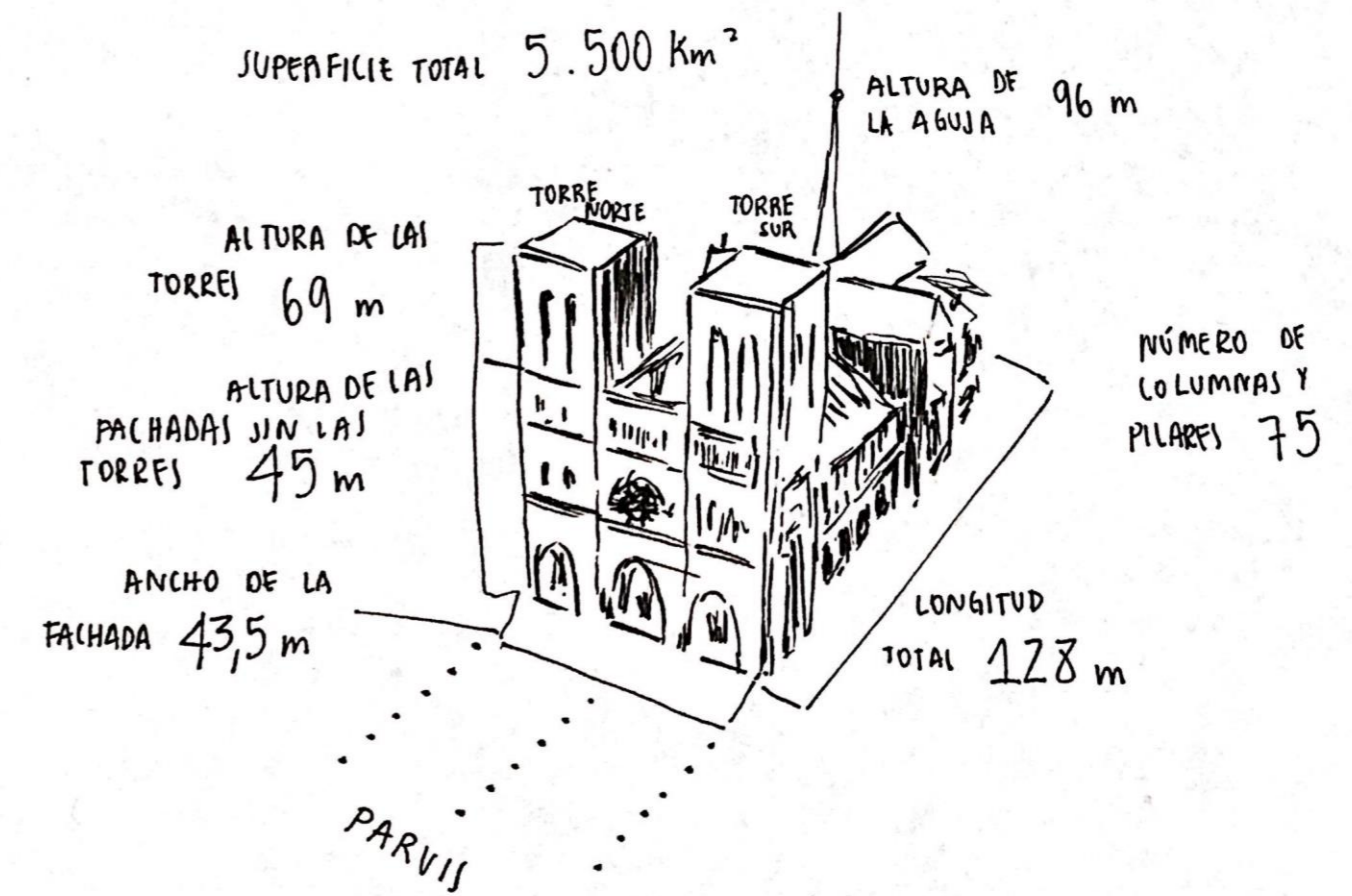 SUPERFICIE TOTAL 5.500 Km²
ALTURA DE
LA AGUJA 96 m
TORRE
NORTE
TORRE
SUR
ALTURA DE LAS
TORRES 69 m
ALTURA DE LAS
FACHADAS SIN LAS
TORRES 45 m
NÚMERO DE
COLUMNAS Y
PILARES 75
ANCHO DE LA
FACHADA 43,5 m
LONGITUD
TOTAL 128 m
PARVIS